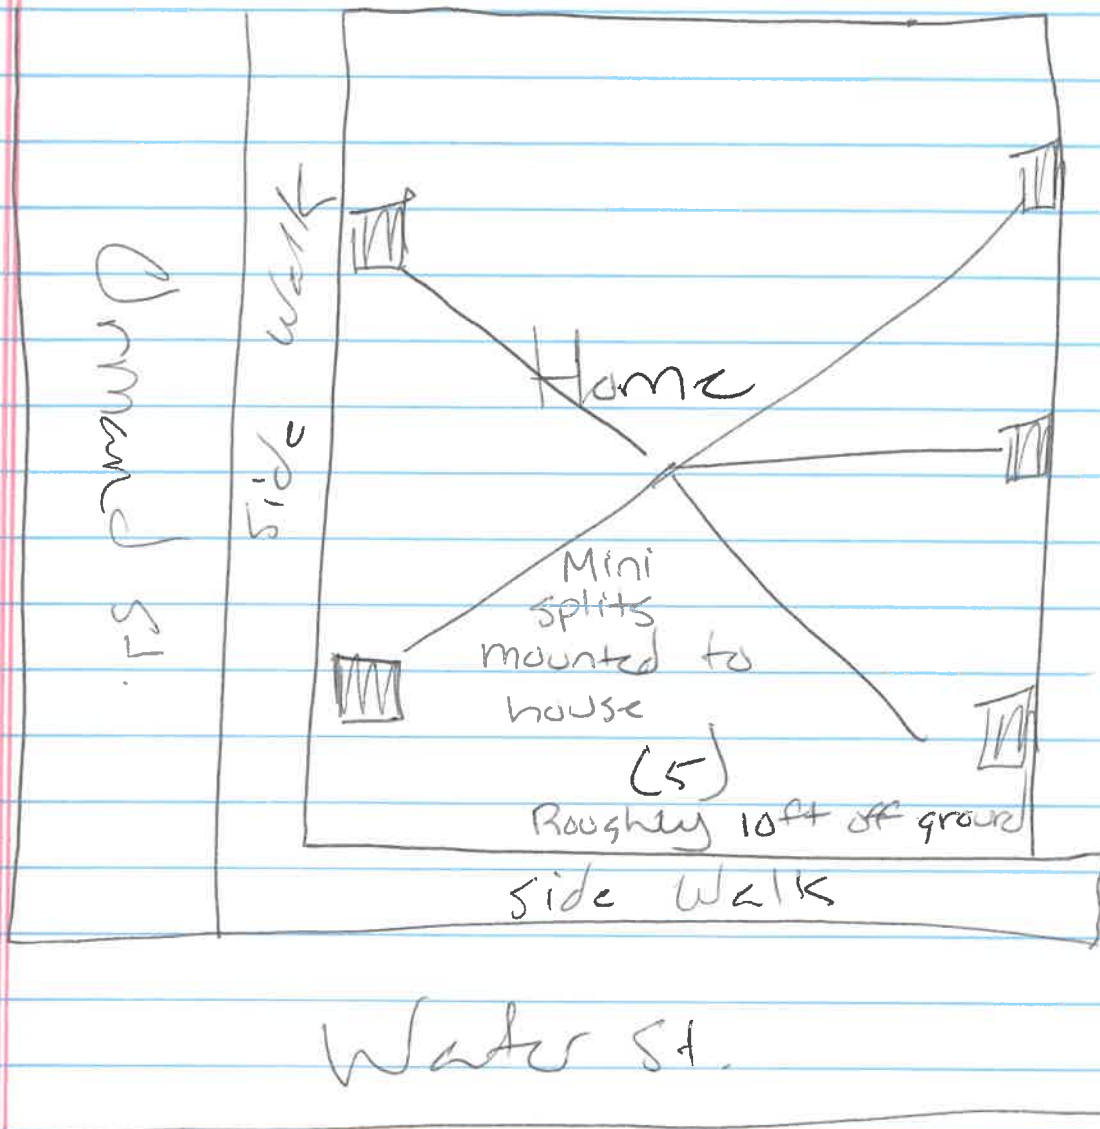 Side Walk
Home
Mini
splits
mounted to
house
(5)
Roughly 10ft off ground
Side Walk
Water St.